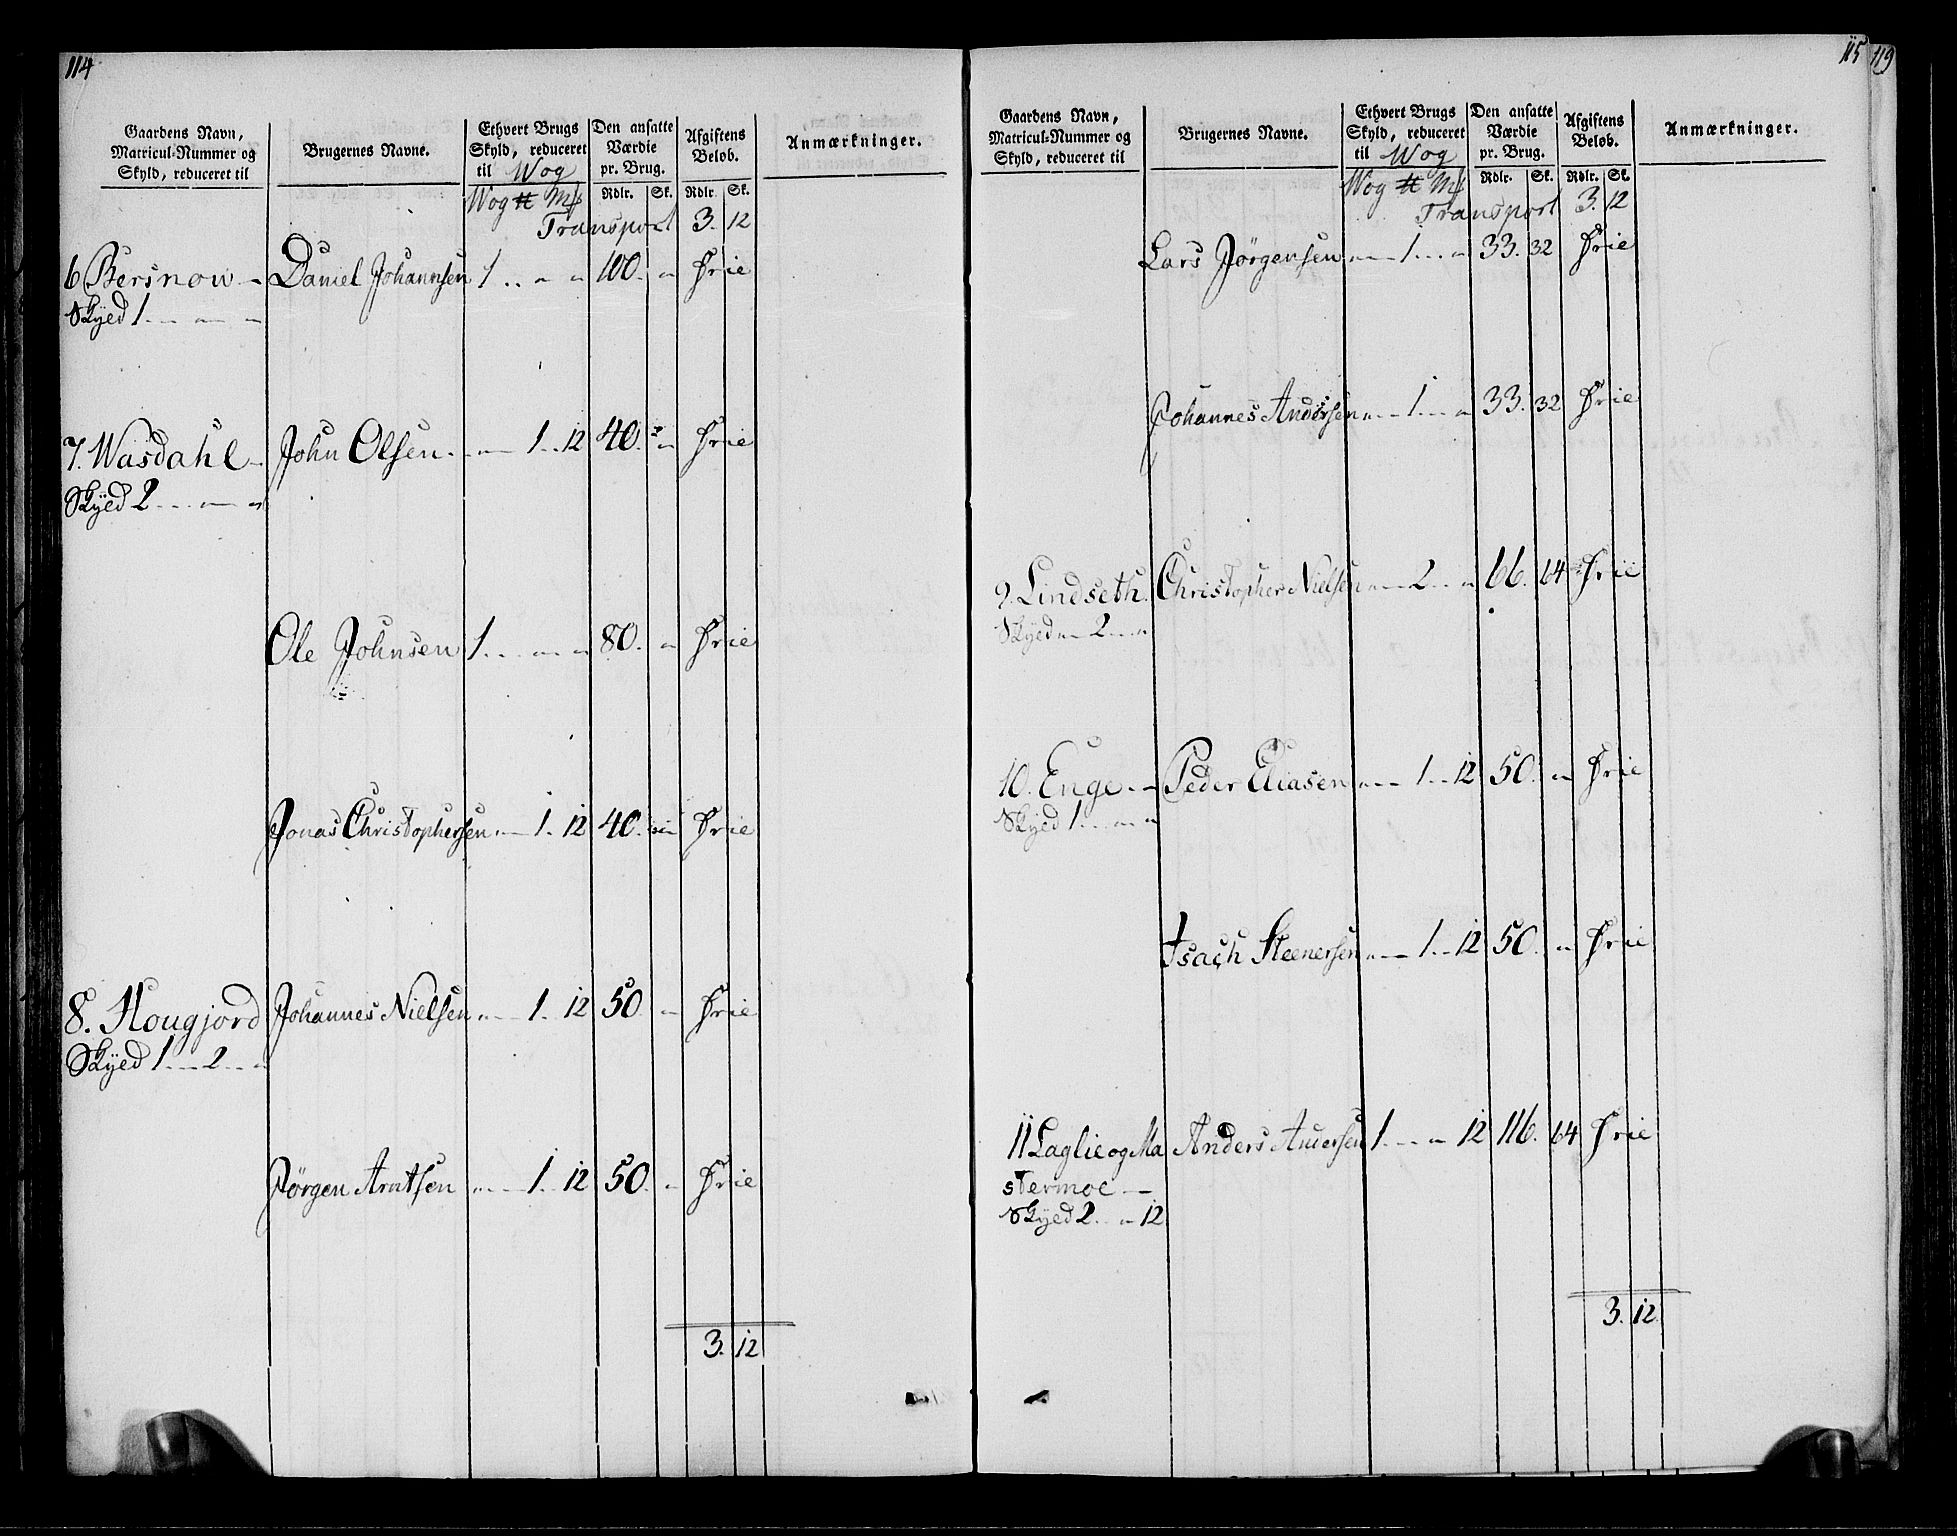 114
Gaardens Navn,
Matricul-Nummer og
Skyld, reduceret til
Brugernes Navne.
Ethvert Brugs
Skyld, reduceret
til Wog
Den ansatte
Værdie
pr. Brug.
Afgiftens
Beløb.
Anmærkninger.
Wog ℔ Mk Rdlr. Sk. Rdlr. Sk.
Transport 3. 12
6 Bersnow Daniel Johannsen 1 .. " " 100. " Frie
Skyed 1 ... " "
7. Wasdahl John Olsen " 1 .. 12 40. " Frie
Skyed 2 ... " "
Ole Johnsen 1 ... " " 80. " Frie
Jonas Christophersen " 1. 12 40. Frie
8. Hougjord Johannes Nielsen " 1. 12 50. " Frie
Skyed 1 ... 2 .. "
Jørgen Arntsen " 1 .. 12 50. " Frie
3. 12
115 119
Gaardens Navn,
Matricul-Nummer og
Skyld, reduceret til
Brugernes Navne.
Ethvert Brugs
Skyld, reduceret
til Wog
Den ansatte
Værdie
pr. Brug.
Afgiftens
Beløb.
Anmærkninger.
Wog ℔ Mk Rdlr. Sk. Rdlr. Sk.
Transport 3. 12
Lars Jørgensen " 1 ... " 33. 32 Frie
Johannes Andersen " 1 ... " 33. 32 Frie
9. Lindseth Christopher Nielsen " 2 .. " 66. 64 Frie
Skyed " 2 ... "
10. Enge Peder Eliasen " 1 .. 12 50. " Frie
Skyed 1 ... " "
Isach Steenersen " 1 .. 12 50. " Frie
11 Laglie og Ma Anders Andersen 1 ... " 12 116. 64 Frie
stermoe
Skyed 2 .. " 12
3. 12